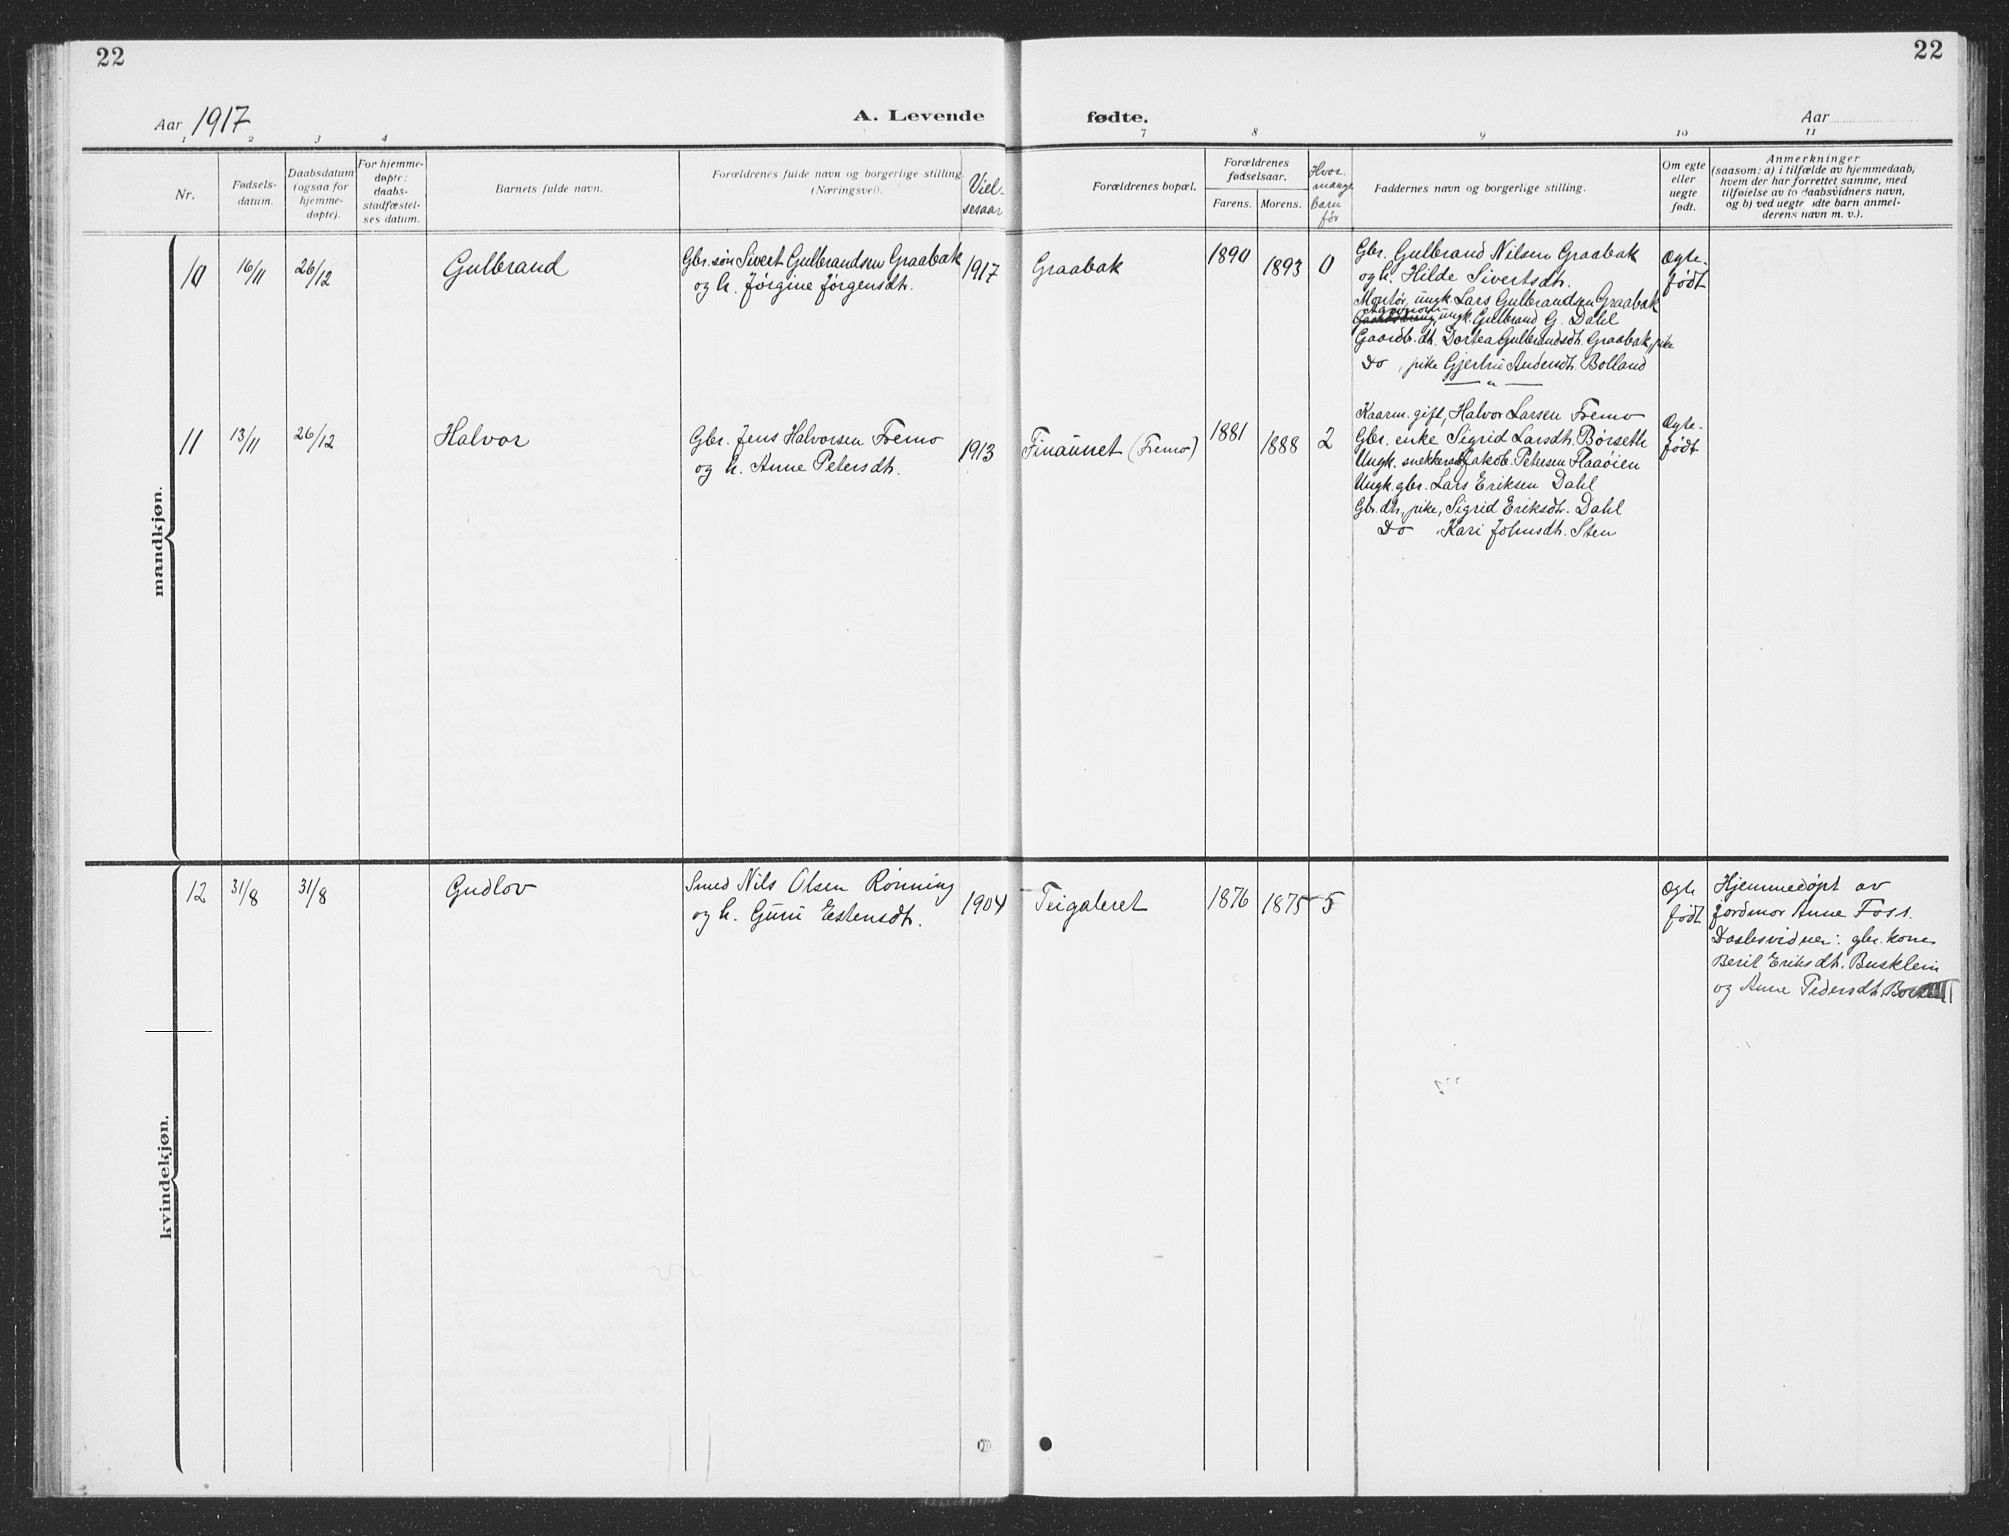 22
22
Aar 1917
A. Levende
fødte.
Aar
1 2 3 4
7 8 9 10 11
Nr.
Fødsels-
datum.
Daabsdatum
(ogsaa for
hjemme-
døpte).
For hjemme-
døpte:
daabs-
stadfæstel-
ses datum.
Barnets fulde navn.
Forældrenes fulde navn og borgerlige stilling.
(Næringsvei).
Viel-
sesaar
Forældrenes bopæl.
Forældrenes
fødselsaar.
Farens. Morens.
Hvor
mange
barn
før
Faddernes navn og borgerlige stilling.
Om egte
eller
uegte
født.
Anmerkninger
(saasom: a) i tilfælde av hjemmedaab,
hvem der har forrettet samme, med
tilføielse av to daabsvidners navn,
og b) ved uegte fødte barn anmel-
derens navn m. v.).
mandkjøn.
10 16/11 26/12 Gulbrand
Gbr. søn Sivert Gulbrandsen Graabak
og h. Jørgine Jørgensdt.
1917 Graabak 1890 1893 0
Gbr. Gulbrand Nilsen Graabak
og h. Hilde Sivertsdt.
Montør, ungk. Lars Gulbrandsen Graabak
ungk. Gulbrand G. Dahl
Gaardb. dt. Dortea Gulbrandsdt. Graabak, pike
Do , pike Gjertru Andersdt. Bolland
Ægte-
født
11 13/11 26/12 Halvor
Gbr. Jens Halvorsen Fremo
og h. Anne Petersdt.
1913 Finaunet (Fremo) 1881 1888 2
Kaarm. gift, Halvor Larsen Fremo
Gbr. enke Sigrid Larsdt. Børseth
Ungk. snekker Jakob Petersen Flaaøien
Ungk. gbr. Lars Eriksen Dahl
Gbr. dt., pike, Sigrid Eriksdt. Dahl
Do Kari Johnsdt. Sten
Ægte-
født
kvindekjøn.
12 31/8 31/8 Gudlov
Smed Nils Olsen Rønning
og h. Guru Estensdt.
1904 Teigaleret 1876 1875 5
Ægte
født
Hjemmedøpt av
jordmor Anne Foss.
Daabsvidner: gbr. kone
Berit Eriksdt. Busklein
og Anne Pedersdt.